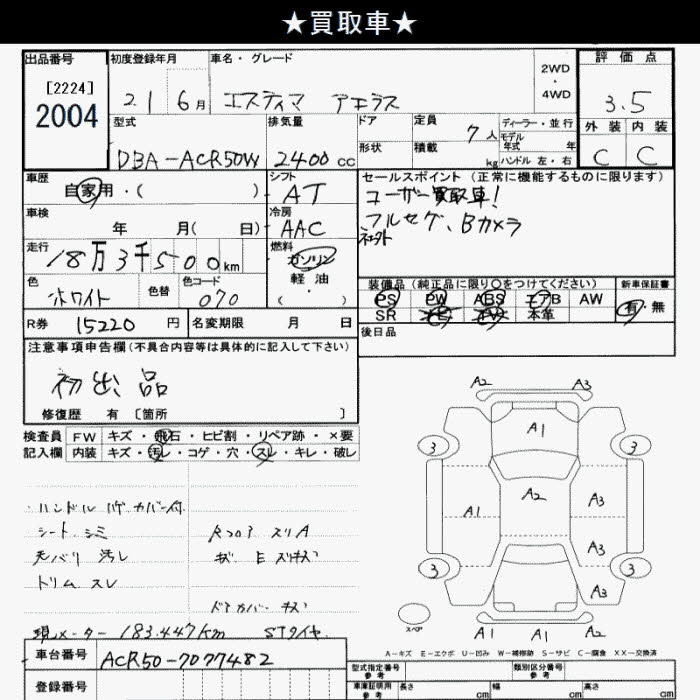 ★買取車★
出品番号
[2224]
2004
初度登録年月
21 6月
車名・グレード
エスティマ アエラス
2WD
・
4WD
評価点
3.5
外装 内装
C C
型式
DBA-ACR50W
排気量
2400cc
ドア
形状
定員
7人
積載
kg
ディーラー・並行
モデル
年式 年
ハンドル 左・右
車歴
自家用・( )
シフト
AT
車検
年 月( 日)
冷房
AAC
走行
18万3千500km
燃料
ガソリン
軽油
( )
色
ホワイト
色替
色コード
070
R券 15220円
名変期限 月 日
セールスポイント(正常に機能するものに限ります)
ユーザー買取車!
フルセグ、Bカメラ
装備品(純正品に限り○をつけてください)
PS PW ABS エアB AW
SR 本革
新車保証書
有・無
後日品
注意事項申告欄(不具合内容等は具体的に記入して下さい)
初出品
修復歴 有〔箇所 〕
検査員 FW キズ・飛石・ヒビ割・リペア跡・×要
記入欄 内装 キズ・汚レ・コゲ・穴・スレ・キレ・破レ
ハンドル ハゲ カバー付
シート シミ
天バリ 汚レ
トリム スレ
ドアカバー キズ
現メーター 183.447km STタイヤ
車台番号 ACR50-7077482
登録番号
A2 A3
A1
3 3
A1 A2 A3
A3
3 3
A3
スペア
A1 A1
A-キズ E-エクボ U-凹み W-補修跡 S-サビ C-腐食 XX-交換済
型式指定番号
参考
類別区分番号
参考
車庫証明用
参考
長さ cm 幅 cm 高さ cm